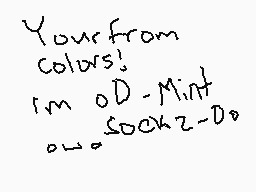 Your from
colors!
im oD-Mint
Sockz-Do
owo